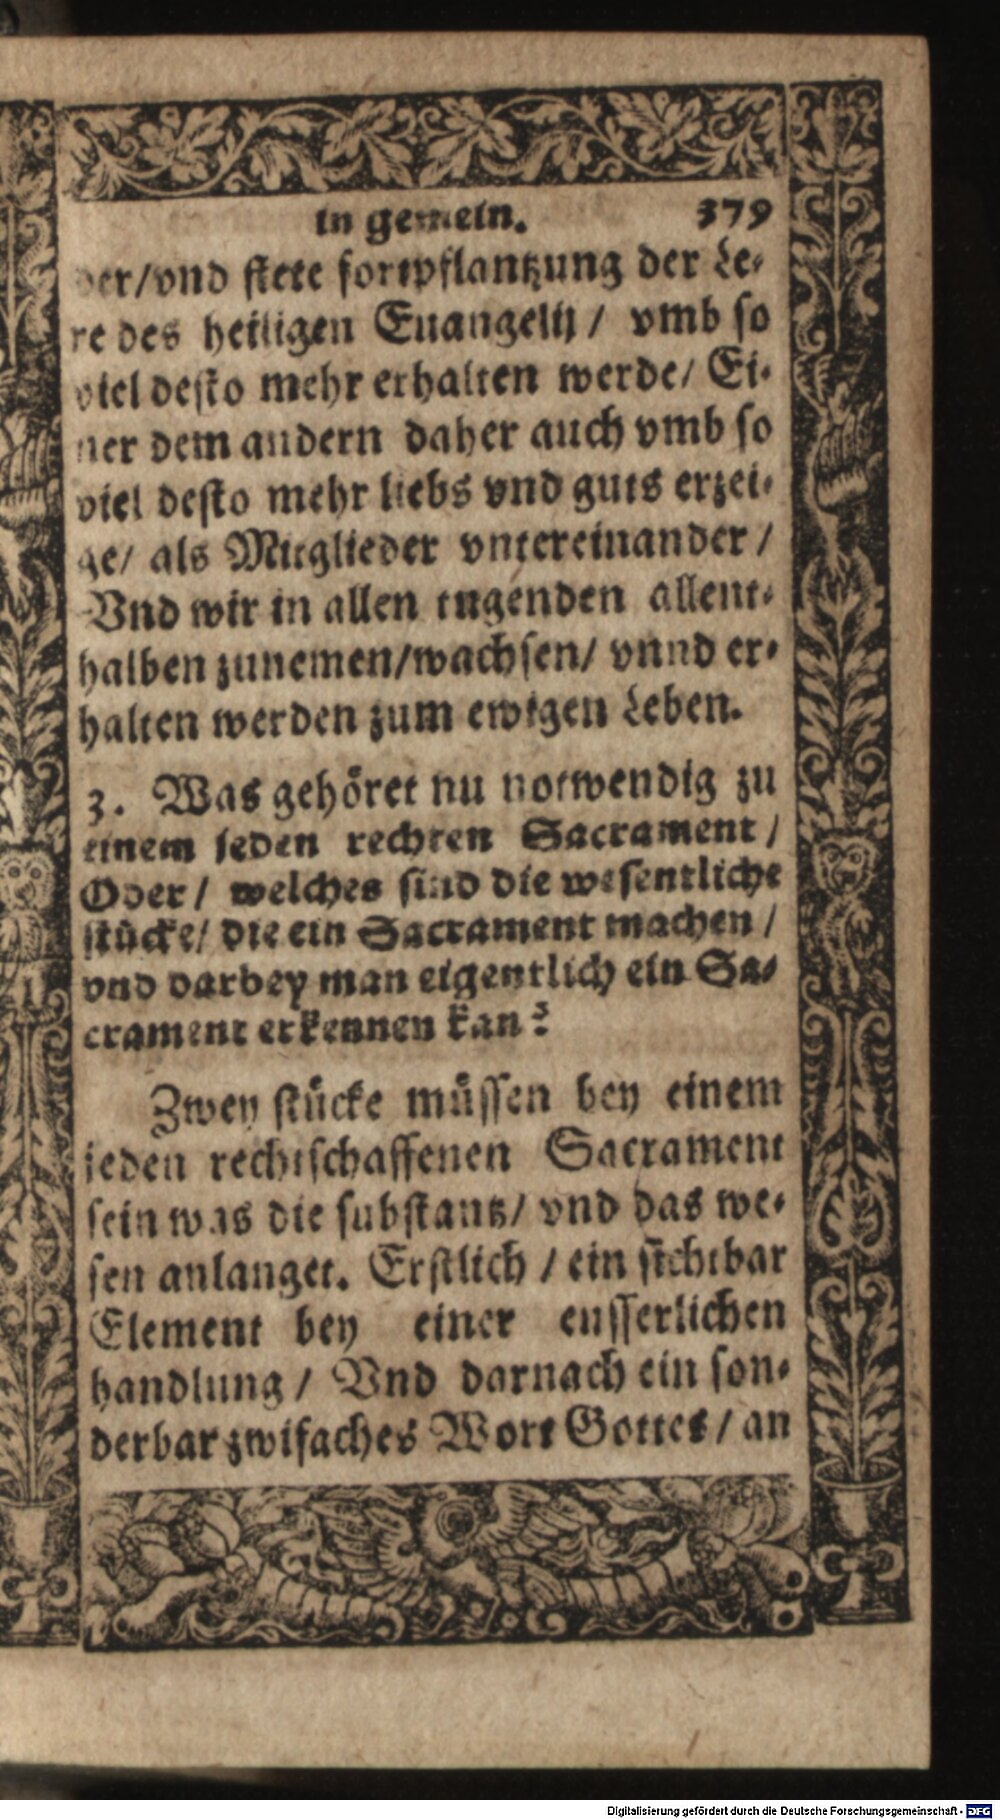 in gemein. 379
der/vnd stete fortpflantzung der Le-
re des heiligen Euangelij / vmb so
viel desto mehr erhalten werde/ Ei-
ner dem andern daher auch vmb so
viel desto mehr liebs vnd guts erzei-
ge/ als Mitglieder vntereinander /
Vnd wir in allen tugenden allent-
halben zunemen/wachsen/ vnnd er-
halten werden zum ewigen Leben.
3. Was gehöret nu notwendig zu
einem jeden rechten Sacrament /
Oder / welches sind die wesentliche
stücke/ die ein Sacrament machen /
vnd darbey man eigentlich ein Sa-
crament erkennen kan?
Zwey stücke müssen bey einem
jeden rechtschaffenen Sacrament
sein was die substantz/ vnd das we-
sen anlanget. Erstlich / ein sichtbar
Element bey einer eusserlichen
handlung / Vnd darnach ein son-
derbar zwifaches Wort Gottes / an
Digitalisierung gefördert durch die Deutsche Forschungsgemeinschaft - DFG